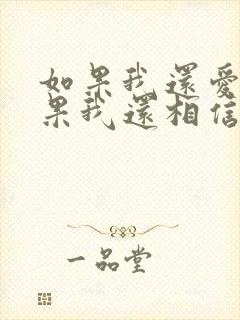 如果我還愛
果我還相信
一品堂